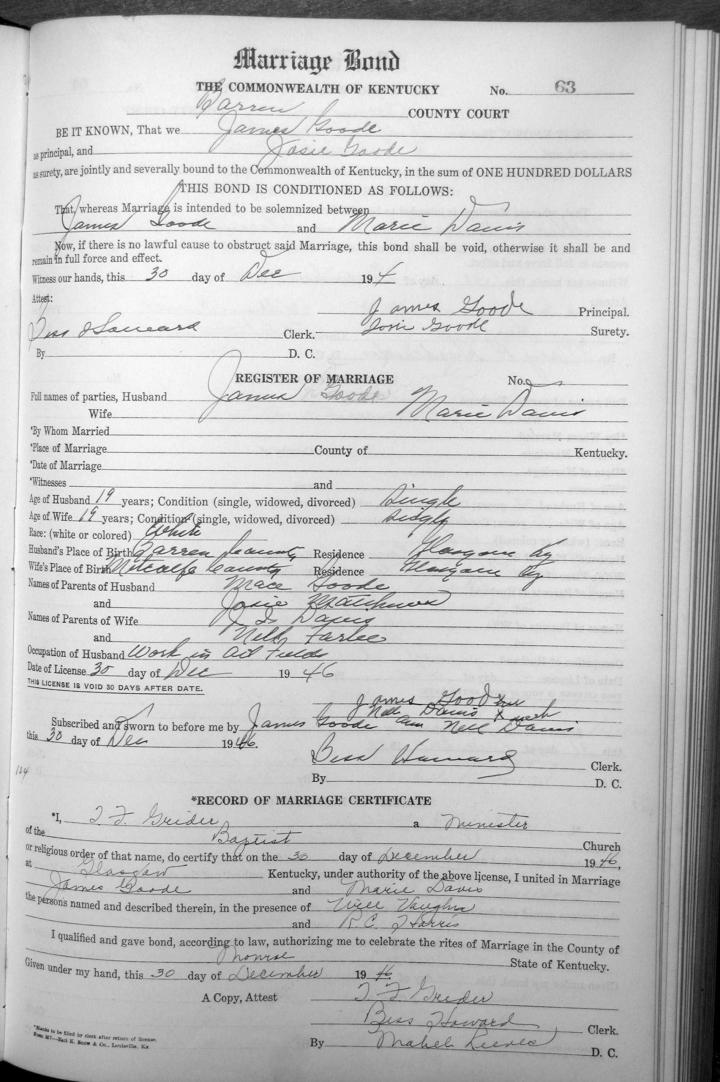 Marriage Bond
THE COMMONWEALTH OF KENTUCKY No. 63
Barren COUNTY COURT
BE IT KNOWN, That we James Goode
as principal, and Josie Goode
as surety, are jointly and severally bound to the Commonwealth of Kentucky, in the sum of ONE HUNDRED DOLLARS
THIS BOND IS CONDITIONED AS FOLLOWS:
That, whereas Marriage is intended to be solemnized between
James Goode and Marie Davis
Now, if there is no lawful cause to obstruct said Marriage, this bond shall be void, otherwise it shall be and
remain in full force and effect.
Witness our hands, this 30 day of Dec 194
Attest: James Goode Principal.
Bess Howard Clerk. Goode Surety.
By D. C.
REGISTER OF MARRIAGE No.
Full names of parties, Husband James Goode
Wife Marie Davis
*By Whom Married
*Place of Marriage County of Kentucky.
*Date of Marriage
*Witnesses and
Age of Husband 19 years; Condition (single, widowed, divorced) Single
Age of Wife 19 years; Condition (single, widowed, divorced) single
Race: (white or colored) White
Husband's Place of Birth Barren County Residence Glasgow Ky
Wife's Place of Birth Metcalfe County Residence Glasgow Ky
Names of Parents of Husband Mace Goode
and Josie Matthews
Names of Parents of Wife Davis
and Nell Farlee
Occupation of Husband Work in Oil Fields
Date of License 30 day of Dec 1946
THIS LICENSE IS VOID 30 DAYS AFTER DATE.
James Goode
Nell Davis X mark
Subscribed and sworn to before me by James Goode Nell Davis
this 30 day of Dec 1946.
Bess Howard Clerk.
By D. C.
124
*RECORD OF MARRIAGE CERTIFICATE
*I, T. F. Grider a Minister
of the Baptist Church
or religious order of that name, do certify that on the 30 day of December 1946,
at Glasgow Kentucky, under authority of the above license, I united in Marriage
James Goode and Marie Davis
the persons named and described therein, in the presence of Will Vaughn
and R.C. Harris
I qualified and gave bond, according to law, authorizing me to celebrate the rites of Marriage in the County of
Monroe State of Kentucky.
Given under my hand, this 30 day of December 1946
A Copy, Attest T. F. Grider
Bess Howard, Clerk.
By Mabel Reeves D. C.
*Blanks to be filled by clerk after return of license.